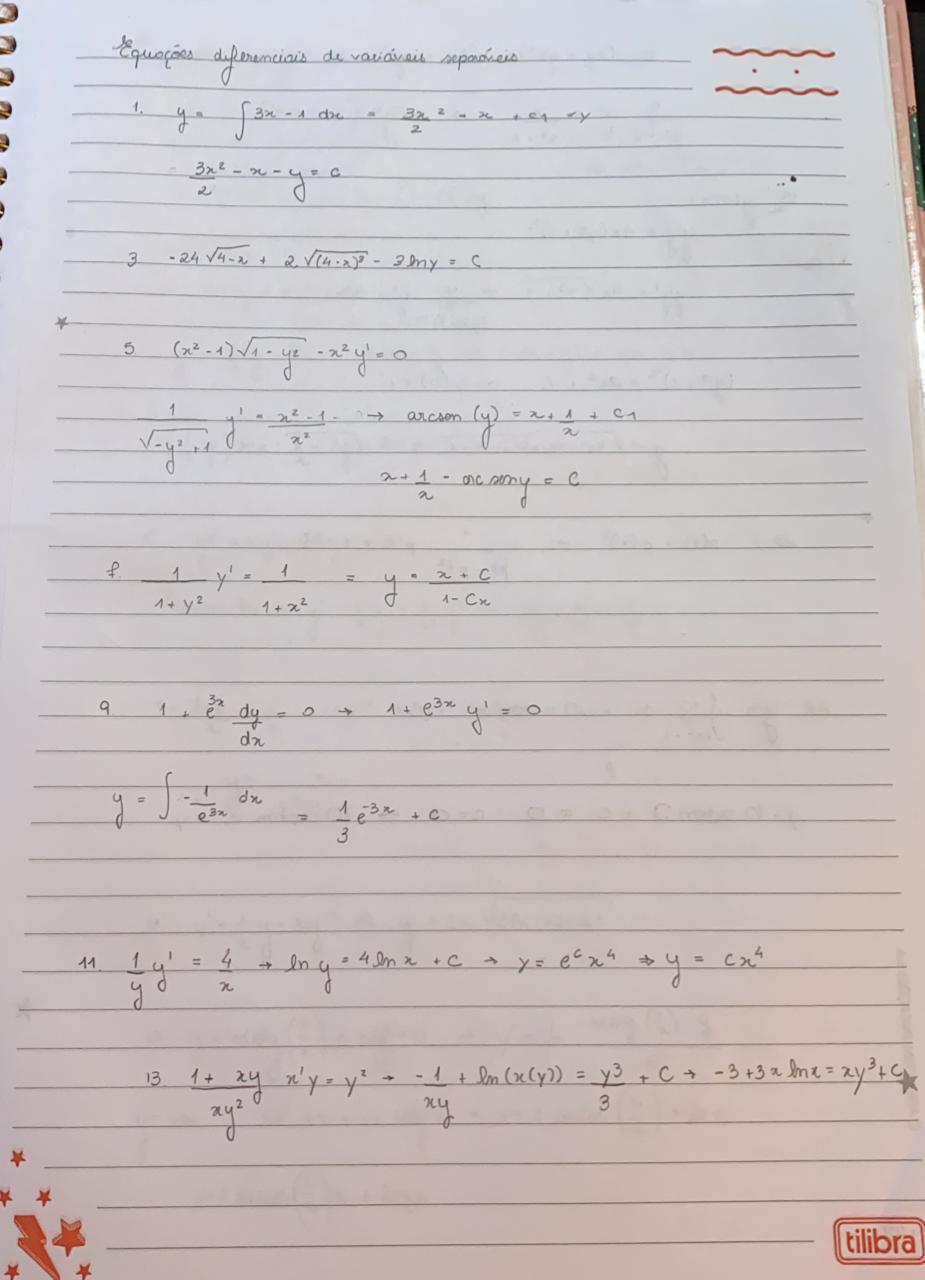 Equações diferenciais de variáveis separáveis
1. y = ∫ 3x - 1 dx = 3x²/2 - x + c₁ = y
3x²/2 - x - y = c
3 -24√(4-x) + 2√((4-x)³) - 3 ln y = C
5 (x² - 1)√(1 - y²) - x² y' = 0
1/√(-y² + 1) y' = (x² - 1)/x² → arcsen (y) = x + 1/x + C₁
x + 1/x - arc sen y = C
7. 1/(1 + y²) y' = 1/(1 + x²) = y = (x + C)/(1 - Cx)
9 1 + e^3x dy/dx = 0 → 1 + e^3x y' = 0
y = ∫ -1/e^3x dx = 1/3 e^-3x + C
11. 1/y y' = 4/x → ln y = 4 ln x + C → y = e^c x⁴ ⇒ y = cx⁴
13 (1 + xy)/(xy²) x'y = y² → -1/(xy) + ln(x(y)) = y³/3 + C → -3 + 3x ln x = xy³ + C
tilibra